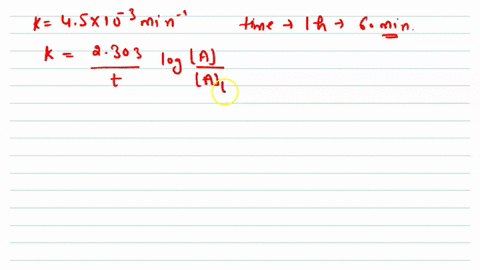 K = 4.5×10⁻³ min⁻¹ time → 1 h → 60 min.
K = 2.303/t log [A]/[A]t